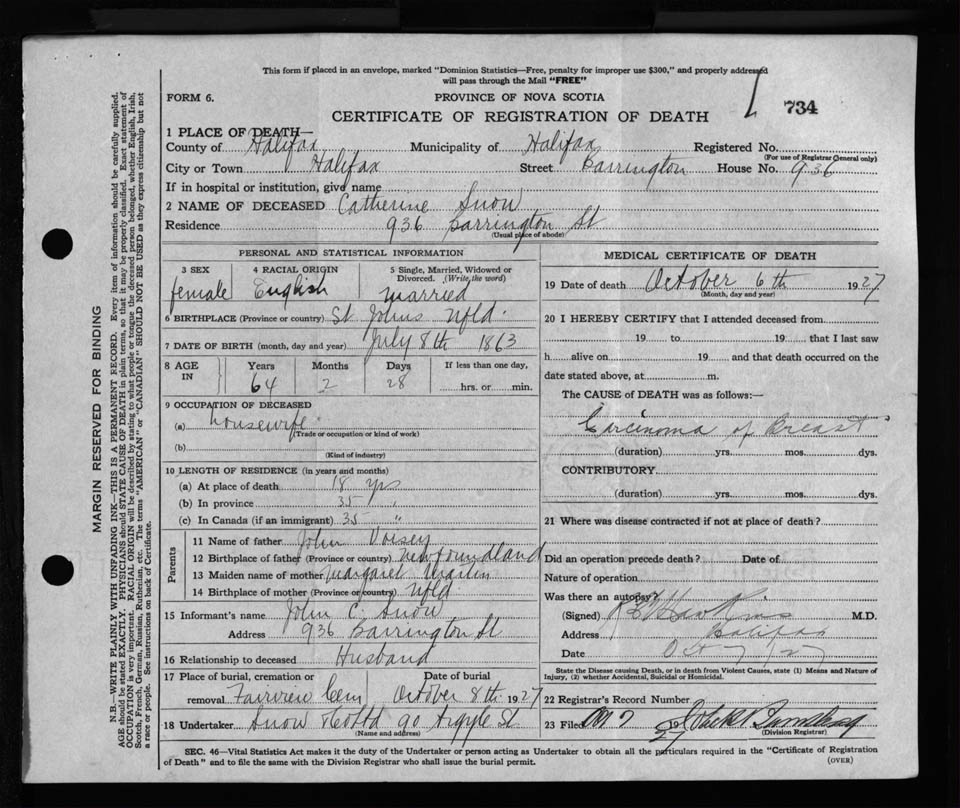 This form if placed in an envelope, marked "Dominion Statistics—Free, penalty for improper use $300," and properly addressed
will pass through the Mail "FREE"
FORM 6.
PROVINCE OF NOVA SCOTIA
734
CERTIFICATE OF REGISTRATION OF DEATH
1 PLACE OF DEATH—
County of Halifax Municipality of Halifax Registered No.
(For use of Registrar General only)
City or Town Halifax Street Barrington House No. 936
If in hospital or institution, give name
2 NAME OF DECEASED Catherine Snow
Residence 936 Barrington St
(Usual place of abode)
PERSONAL AND STATISTICAL INFORMATION
3 SEX 4 RACIAL ORIGIN 5 Single, Married, Widowed or
Divorced. (Write the word)
female English Married
6 BIRTHPLACE (Province or country) St Johns Nfld.
7 DATE OF BIRTH (month, day and year) July 8th 1863
8 AGE IN Years Months Days If less than one day,
64 2 28 hrs. or min.
9 OCCUPATION OF DECEASED
(a) housewife
(Trade or occupation or kind of work)
(b)
(Kind of industry)
10 LENGTH OF RESIDENCE (in years and months)
(a) At place of death 18 yrs
(b) In province 35 "
(c) In Canada (if an immigrant) 35 "
Parents
11 Name of father John Voisey
12 Birthplace of father (Province or country) Newfoundland
13 Maiden name of mother Margaret
14 Birthplace of mother (Province or country) Nfld
15 Informant's name John C. Snow
Address 936 Barrington St
16 Relationship to deceased Husband
17 Place of burial, cremation or Date of burial
removal Fairview Cem October 8th 1927
18 Undertaker Snow & Co Ltd 90 Argyle St
(Name and address)
MEDICAL CERTIFICATE OF DEATH
19 Date of death October 6th 1927
(Month, day and year)
20 I HEREBY CERTIFY that I attended deceased from
19 to 19 that I last saw
h alive on 19 and that death occurred on the
date stated above, at m.
The CAUSE of DEATH was as follows:—
Carcinoma of Breast
(duration) yrs. mos. dys.
CONTRIBUTORY
(duration) yrs. mos. dys.
21 Where was disease contracted if not at place of death?
Did an operation precede death? Date of
Nature of operation
Was there an autopsy?
(Signed) M.D.
Address Halifax
Date Oct 7/27
State the Disease causing Death, or in death from Violent Causes, state (1) Means and Nature of
Injury, (2) whether Accidental, Suicidal or Homicidal.
22 Registrar's Record Number
23 Filed Oct 7 27
(Division Registrar)
SEC. 46—Vital Statistics Act makes it the duty of the Undertaker or person acting as Undertaker to obtain all the particulars required in the "Certificate of Registration
of Death" and to file the same with the Division Registrar who shall issue the burial permit.
(OVER)
MARGIN RESERVED FOR BINDING
N.B.—WRITE PLAINLY WITH UNFADING INK—THIS IS A PERMANENT RECORD. Every item of information should be carefully supplied.
AGE should be stated EXACTLY. PHYSICIANS should STATE CAUSE OF DEATH in plain terms, so that it may be properly classified. Exact statement of
OCCUPATION is very important. RACIAL ORIGIN will be described by stating to what people or tongue the deceased person belonged, whether English, Irish,
Scotch, French, German, Russian, Ruthenian, etc. The terms "AMERICAN" or "CANADIAN" SHOULD NOT BE USED as they express citizenship but not
a race or people. See instructions on back of Certificate.